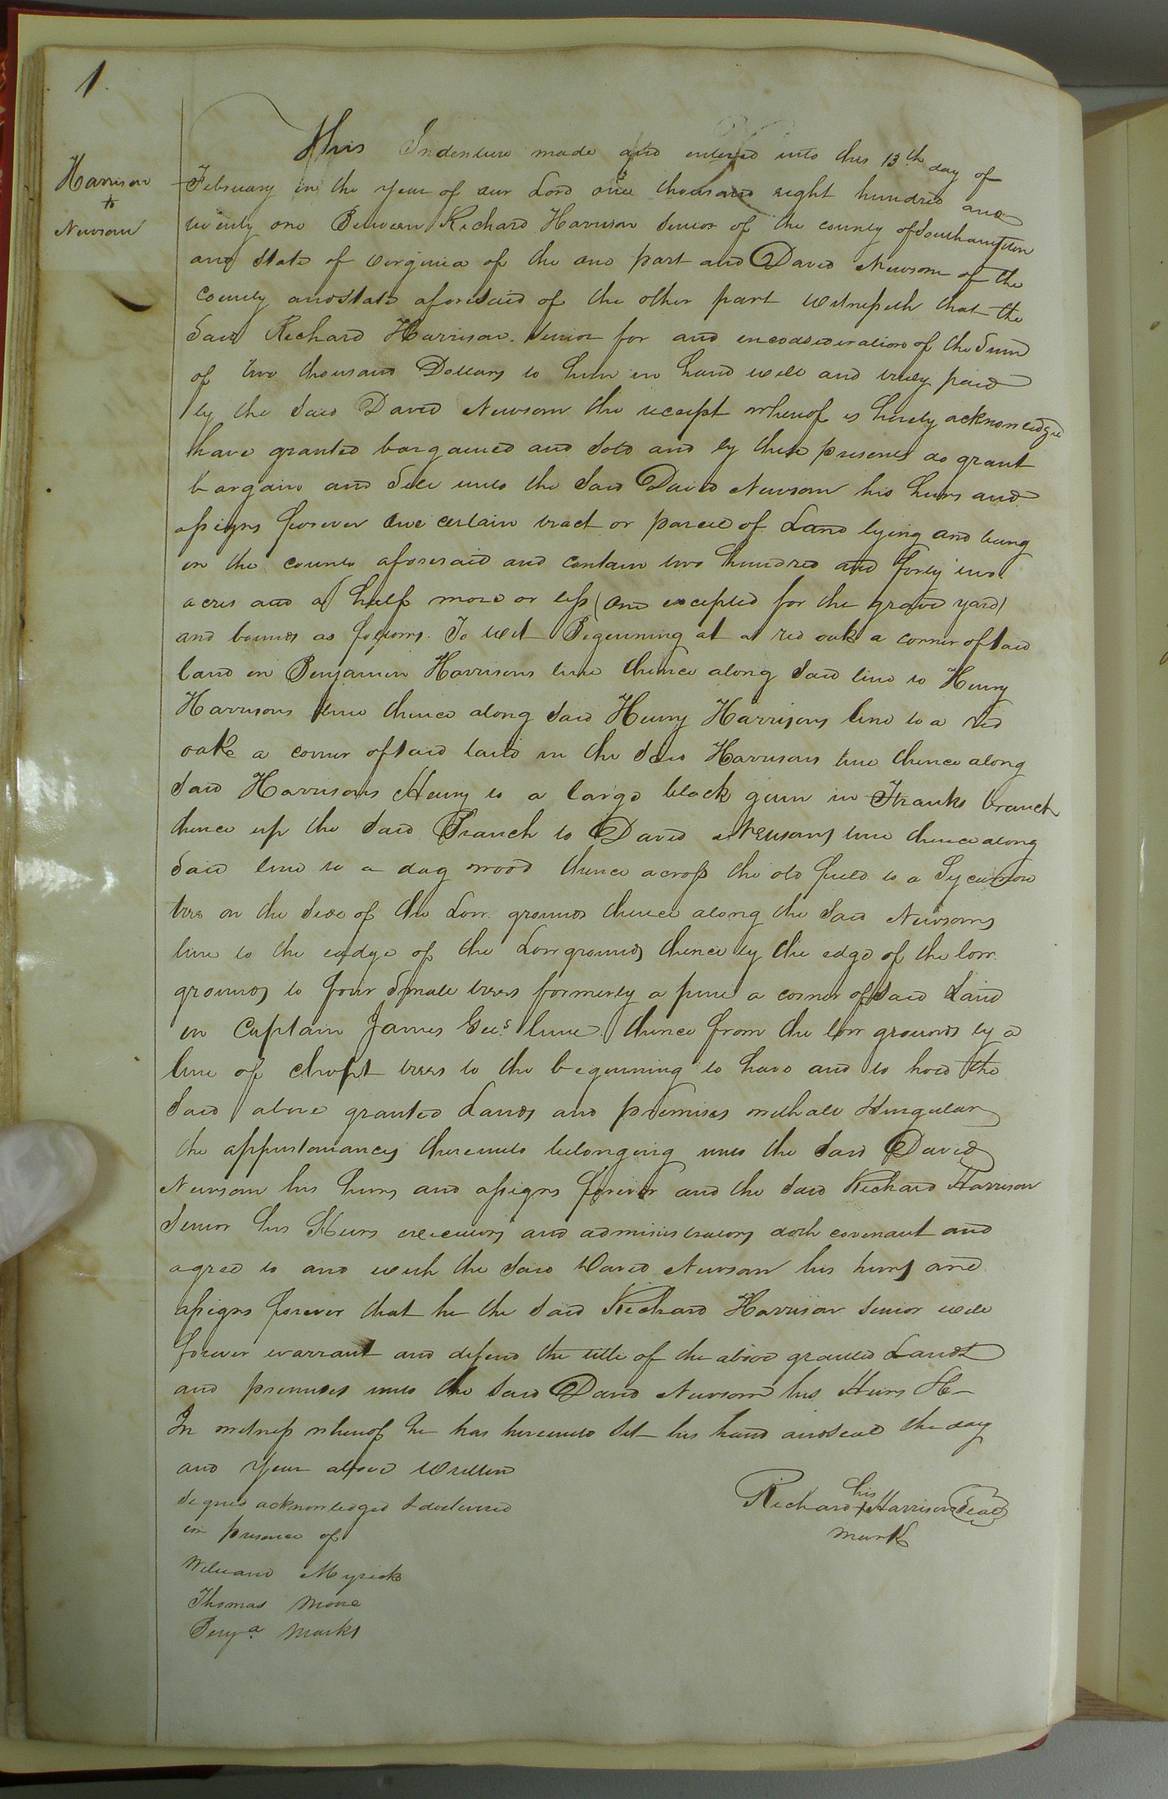 1.
Harrison
to
Newsom
This Indenture made and entered into this 13th day of
February in the year of our Lord one thousand eight hundred and
twenty one Between Richard Harrison Senior of the county of Southampton
and State of Virginia of the one part and David Newsom of the
County and State aforesaid of the other part Witnesseth that the
Said Richard Harrison Senior for and in consideration of the Sum
of two thousand Dollars to him in hand well and truly paid
by the Said David Newsom the receipt whereof is hereby acknowledged
have granted bargained and Sold and by these presents do grant
bargain and Sell unto the Said David Newsom his heirs and
assigns forever one certain tract or parcel of Land lying and being
in the county aforesaid and contain two hundred and forty two
acres and a half more or less (one excepted for the grave yard)
and bounds as follows. To wit Beginning at a red oak a corner of said
land in Benjamin Harrisons line thence along Said line to Henry
Harrisons line thence along Said Henry Harrisons line to a red
oake a corner of said land in the Said Harrisons line thence along
Said Harrisons Henry to a large black gum in Franks branch
thence up the Said Branch to David Newsoms line thence along
Said line to a dog wood thence across the old field to a Sycamore
tree on the Side of the Low grounds thence along the Said Newsoms
line to the eadge of the Low grounds thence by the edge of the low
grounds to four Small trees formerly a pine a corner of Said Land
in Captain James Gee's line thence from the low grounds by a
line of chopt trees to the beginning to have and to hold the
Said above granted Lands and premises with all Singular
the appurtanances thereunto belonging unto the Said David
Newsom his heirs and assigns forever and the Said Richard Harrison
Senior his Heirs executors and administrators doth covenant and
agree to and with the Said David Newsom his heirs and
assigns forever that he the Said Richard Harrison Senior will
forever warrant and defend the title of the above granted Lands
and premises unto the Said David Newsom his Heirs &c
In witness whereof he has hereunto Set his hand and Seal the day
and Year above Written
Signed acknowledged & delivered
in presence of
Richard his X mark Harrison Seal
William Myrick
Thomas More
Benja. Marks